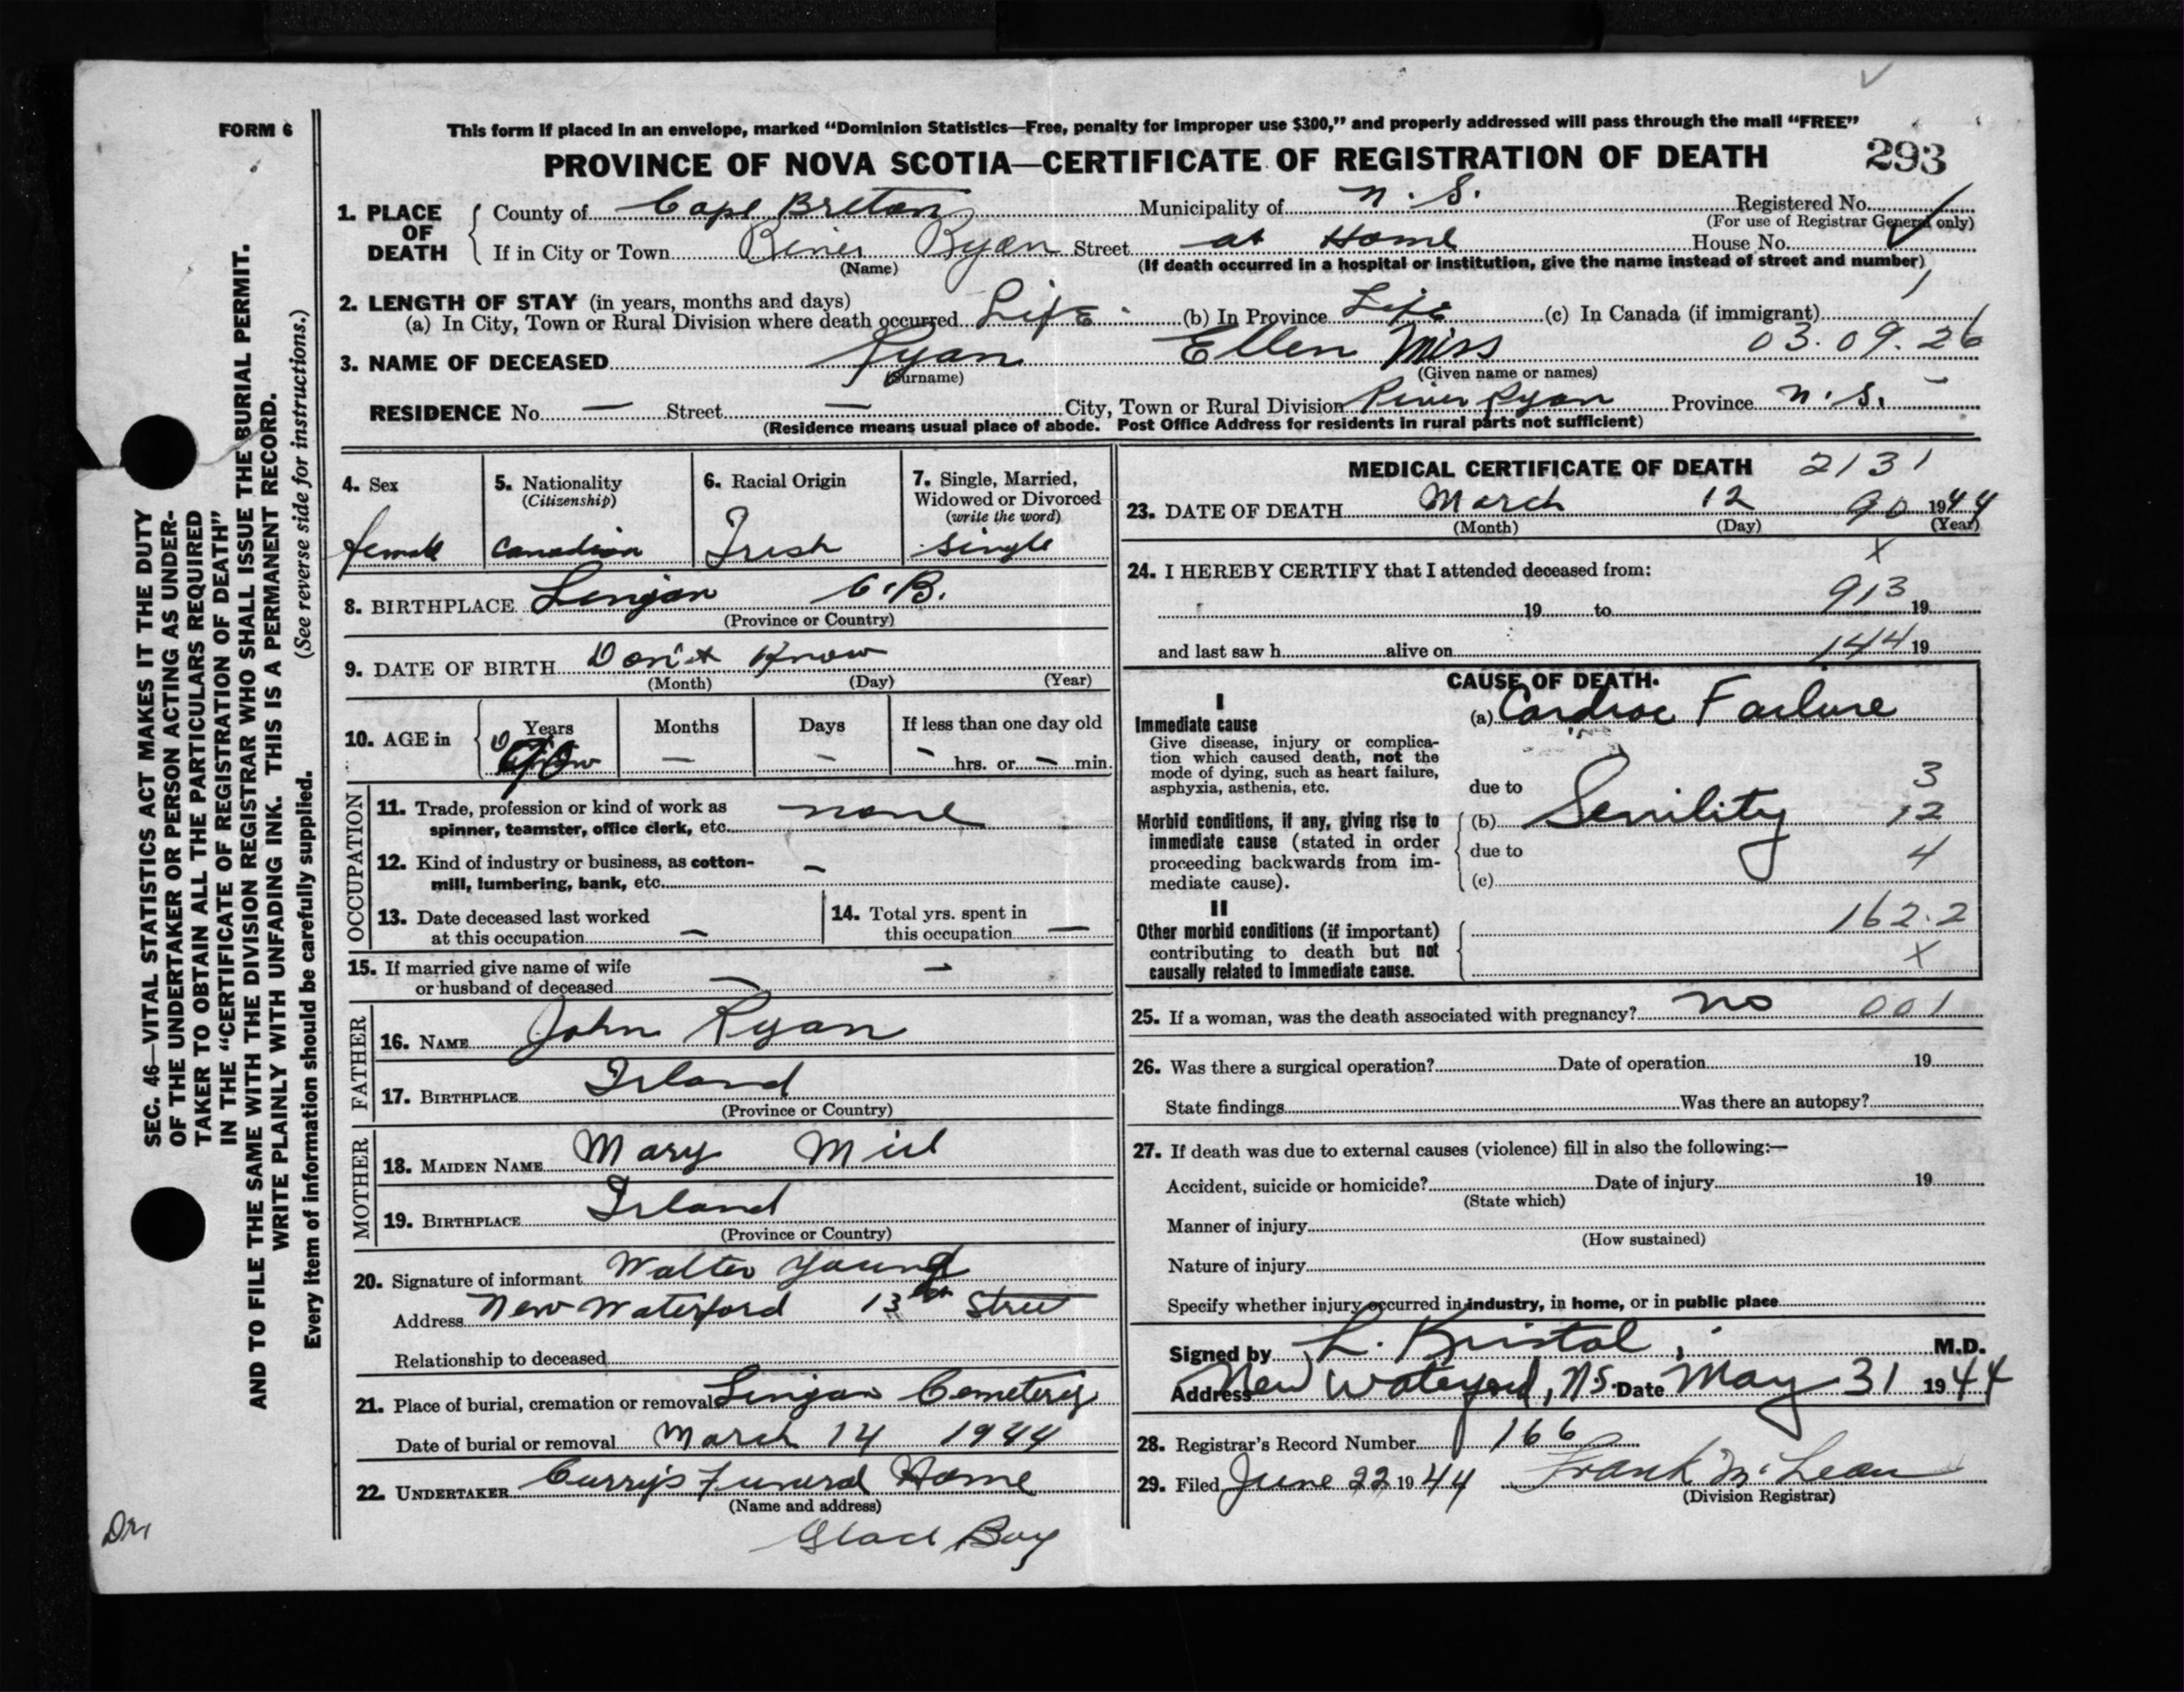 FORM 6
This form if placed in an envelope, marked "Dominion Statistics—Free, penalty for improper use $300," and properly addressed will pass through the mail "FREE"
PROVINCE OF NOVA SCOTIA—CERTIFICATE OF REGISTRATION OF DEATH 293
1. PLACE OF DEATH County of Cape Breton Municipality of N. S. Registered No.
(For use of Registrar General only)
If in City or Town River Ryan Street at Home House No.
(Name) (If death occurred in a hospital or institution, give the name instead of street and number)
2. LENGTH OF STAY (in years, months and days)
(a) In City, Town or Rural Division where death occurred Life (b) In Province Life (c) In Canada (if immigrant)
3. NAME OF DECEASED Ryan Ellen Miss 03.09.26
(Surname) (Given name or names)
RESIDENCE No. — Street — City, Town or Rural Division River Ryan Province N. S.
(Residence means usual place of abode. Post Office Address for residents in rural parts not sufficient)
4. Sex female
5. Nationality (Citizenship) Canadian
6. Racial Origin Irish
7. Single, Married, Widowed or Divorced (write the word) Single
8. BIRTHPLACE Lingan C.B.
(Province or Country)
9. DATE OF BIRTH Don't Know
(Month) (Day) (Year)
10. AGE in Years 90 Months — Days — If less than one day old — hrs. or — min.
OCCUPATION
11. Trade, profession or kind of work as
spinner, teamster, office clerk, etc. none
12. Kind of industry or business, as cotton-
mill, lumbering, bank, etc. —
13. Date deceased last worked
at this occupation —
14. Total yrs. spent in
this occupation —
15. If married give name of wife
or husband of deceased —
FATHER
16. NAME John Ryan
17. BIRTHPLACE Irland
(Province or Country)
MOTHER
18. MAIDEN NAME Mary
19. BIRTHPLACE Irland
(Province or Country)
20. Signature of informant Walter Young
Address New Waterford 13th Street
Relationship to deceased
21. Place of burial, cremation or removal Lingan Cemetery
Date of burial or removal March 14 1944
22. UNDERTAKER Curry's Funeral Home
(Name and address)
Glace Bay
MEDICAL CERTIFICATE OF DEATH 2131
23. DATE OF DEATH March 12 90 1944
(Month) (Day) (Year)
X
24. I HEREBY CERTIFY that I attended deceased from:
19 to 913 19
and last saw h alive on 144 19
CAUSE OF DEATH.
I
Immediate cause (a) Cardiac Failure
Give disease, injury or complica-
tion which caused death, not the
mode of dying, such as heart failure,
asphyxia, asthenia, etc. due to 3
Morbid conditions, if any, giving rise to (b) Senility 12
immediate cause (stated in order
proceeding backwards from im- due to 4
mediate cause). (c)
II
Other morbid conditions (if important) 162.2
contributing to death but not X
causally related to immediate cause.
25. If a woman, was the death associated with pregnancy? no 001
26. Was there a surgical operation? Date of operation 19
State findings Was there an autopsy?
27. If death was due to external causes (violence) fill in also the following:—
Accident, suicide or homicide? Date of injury 19
(State which)
Manner of injury
(How sustained)
Nature of injury
Specify whether injury occurred in industry, in home, or in public place
Signed by L. Kristal M.D.
Address New Waterford, N.S. Date May 31 1944
28. Registrar's Record Number 166
29. Filed June 22 1944 Frank McLean
(Division Registrar)
SEC. 46—VITAL STATISTICS ACT MAKES IT THE DUTY
OF THE UNDERTAKER OR PERSON ACTING AS UNDER-
TAKER TO OBTAIN ALL THE PARTICULARS REQUIRED
IN THE "CERTIFICATE OF REGISTRATION OF DEATH"
AND TO FILE THE SAME WITH THE DIVISION REGISTRAR WHO SHALL ISSUE THE BURIAL PERMIT.
WRITE PLAINLY WITH UNFADING INK. THIS IS A PERMANENT RECORD.
Every item of information should be carefully supplied. (See reverse side for instructions.)